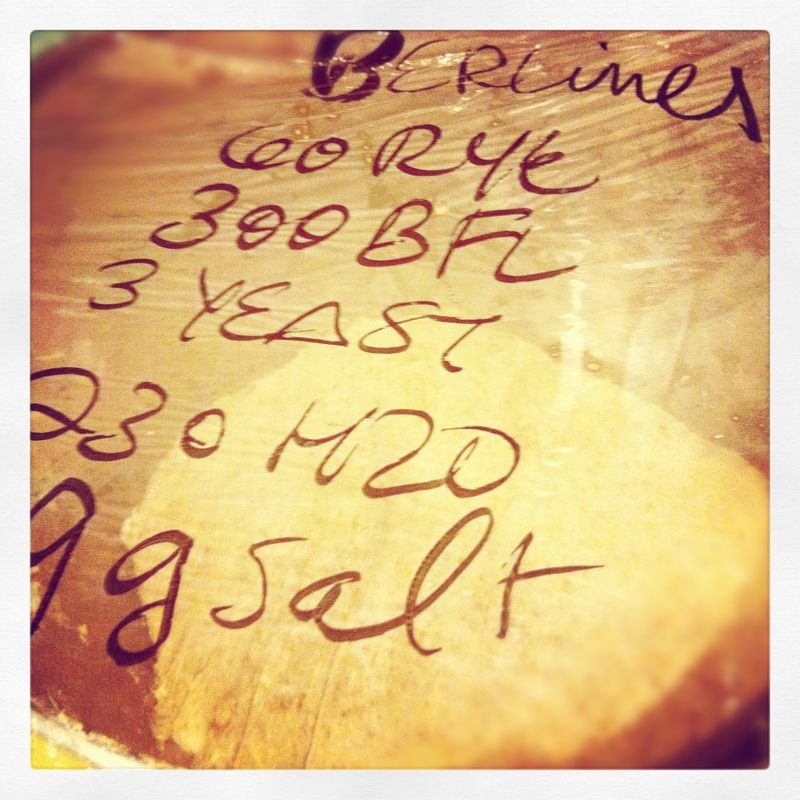 BERLiner
60 RYE
300 BFL
3 YEAST
230 H2O
9g Salt